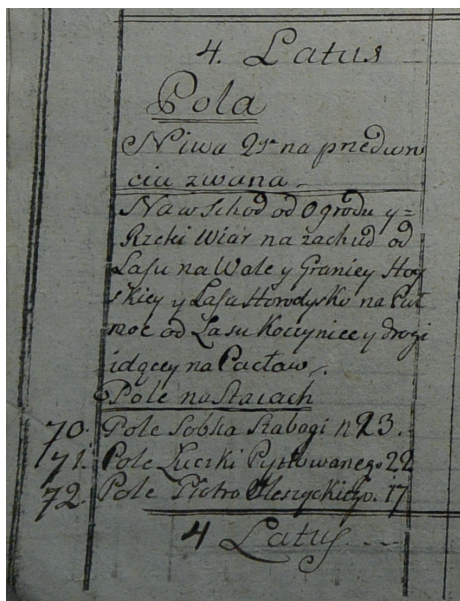 4. Latus
Pola
Niwa 2r na przedwro
ciu zwana
Na wschod od Ogrodu y=
Rzeki Wiar na zachud od
Lasu na Wale y Granicy Huy
skiey y Lasu Horodysko na Puł
noc od Lasu Koczynice y drogi
idącey na Pacław.
Pole na Staiach
70. Pole Sobka Szabagi n 23.
71. Pole Luczki Pystowanego 22
72. Pole Piotra Oleszyckiego. 17
4 Latus